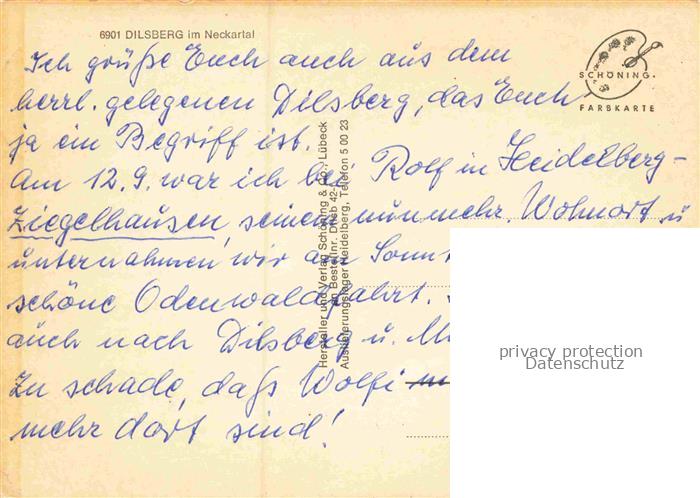 6901 DILSBERG im Neckartal
SCHÖNING·
FARBKARTE
Ich grüße Euch auch aus dem
herrl. gelegenen Dilsberg, das Euch
ja ein Begriff ist.
Am 12.9. war ich bei Rolf in Heidelberg-
Ziegelhausen, seinem nunmehr. Wohnort u
unternahmen wir am Sonnt
schöne Odenwaldfahrt.
auch nach Dilsberg u.
Zu schade, daß Wolfi
mehr dort sind!
Hersteller und Verlag Schöning & Co., Lübeck
Bestellnr.
Auslieferungslager Heidelberg, Telefon 5 00 23
privacy protection
Datenschutz